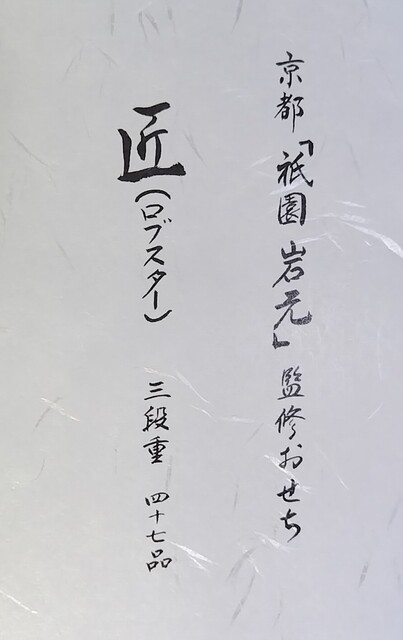 京都「祇園 岩元」監修おせち
匠(ロブスター) 三段重 四十七品